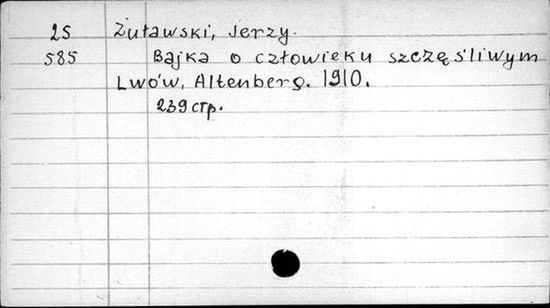 25 Żuławski, Jerzy.
585 Bajka o człowieku szczęśliwym
Lwów, Altenberg. 1910.
239 стр.